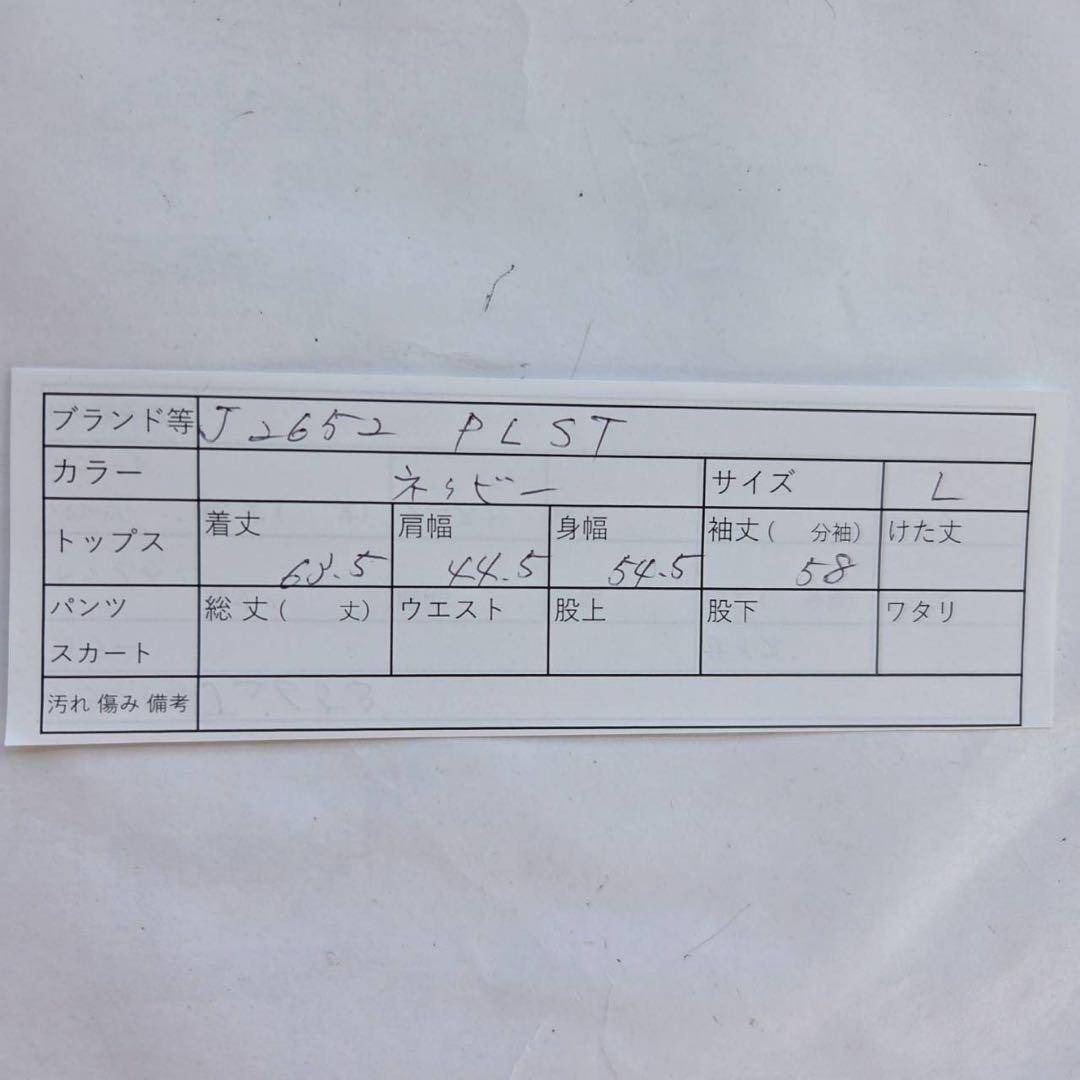 ブランド等 J2652 PLST
カラー ネッビー サイズ L
トップス 着丈 63.5 肩幅 44.5 身幅 54.5 袖丈( 分袖) 58 けた丈
パンツ スカート 総丈( 丈) ウエスト 股上 股下 ワタリ
汚れ 傷み 備考